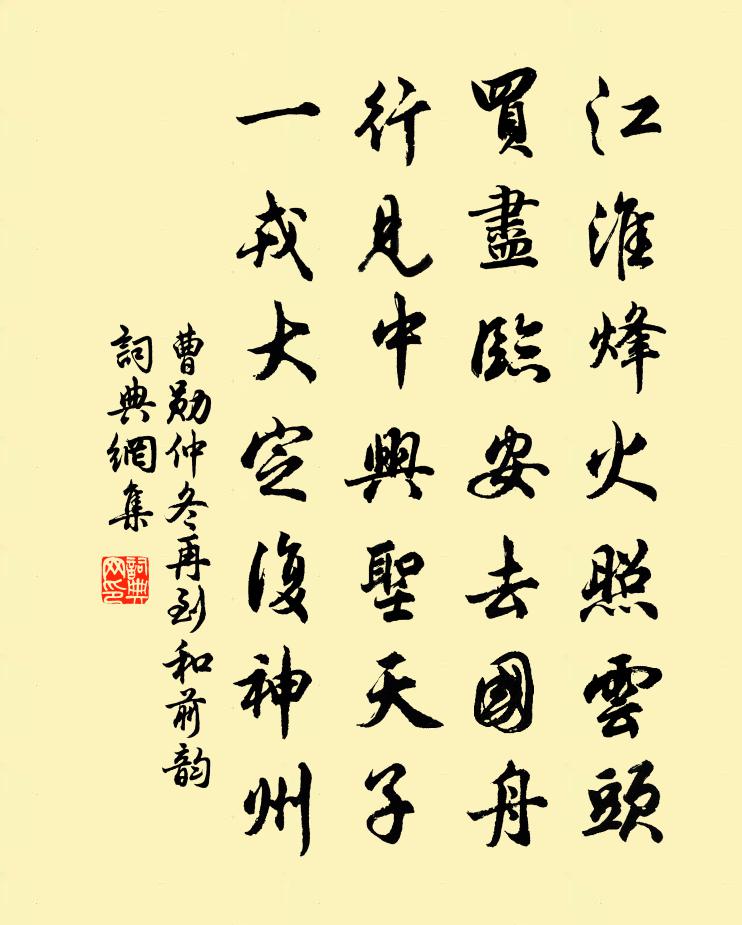 江淮烽火照雲頭
買盡臨安去國舟
行見中興聖天子
一戎大定復神州
曹勛仲冬再到和前韵
詞典網集
詞典網印